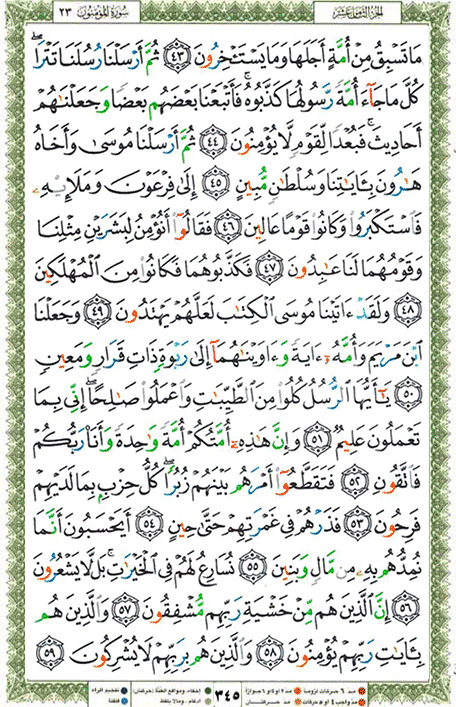 سُورَةُ المُؤْمِنُون ٢٣
الجزء الثامن عشر
مَا تَسْبِقُ مِنْ أُمَّةٍ أَجَلَهَا وَمَا يَسْتَـْٔخِرُونَ ۝٤٣ ثُمَّ أَرْسَلْنَا رُسُلَنَا تَتْرَا ۖ
كُلَّ مَا جَآءَ أُمَّةً رَّسُولُهَا كَذَّبُوهُ ۚ فَأَتْبَعْنَا بَعْضَهُم بَعْضًا وَجَعَلْنَٰهُمْ
أَحَادِيثَ ۚ فَبُعْدًا لِّقَوْمٍ لَّا يُؤْمِنُونَ ۝٤٤ ثُمَّ أَرْسَلْنَا مُوسَىٰ وَأَخَاهُ
هَٰرُونَ بِـَٔايَٰتِنَا وَسُلْطَٰنٍ مُّبِينٍ ۝٤٥ إِلَىٰ فِرْعَوْنَ وَمَلَإِي۟هِۦ
فَٱسْتَكْبَرُوا۟ وَكَانُوا۟ قَوْمًا عَالِينَ ۝٤٦ فَقَالُوٓا۟ أَنُؤْمِنُ لِبَشَرَيْنِ مِثْلِنَا
وَقَوْمُهُمَا لَنَا عَٰبِدُونَ ۝٤٧ فَكَذَّبُوهُمَا فَكَانُوا۟ مِنَ ٱلْمُهْلَكِينَ
۝٤٨ وَلَقَدْ ءَاتَيْنَا مُوسَى ٱلْكِتَٰبَ لَعَلَّهُمْ يَهْتَدُونَ ۝٤٩ وَجَعَلْنَا
ٱبْنَ مَرْيَمَ وَأُمَّهُۥٓ ءَايَةً وَءَاوَيْنَٰهُمَآ إِلَىٰ رَبْوَةٍ ذَاتِ قَرَارٍ وَمَعِينٍ
۝٥٠ يَٰٓأَيُّهَا ٱلرُّسُلُ كُلُوا۟ مِنَ ٱلطَّيِّبَٰتِ وَٱعْمَلُوا۟ صَٰلِحًا ۖ إِنِّى بِمَا
تَعْمَلُونَ عَلِيمٌ ۝٥١ وَإِنَّ هَٰذِهِۦٓ أُمَّتُكُمْ أُمَّةً وَٰحِدَةً وَأَنَا۠ رَبُّكُمْ
فَٱتَّقُونِ ۝٥٢ فَتَقَطَّعُوٓا۟ أَمْرَهُم بَيْنَهُمْ زُبُرًا ۖ كُلُّ حِزْبٍۭ بِمَا لَدَيْهِمْ
فَرِحُونَ ۝٥٣ فَذَرْهُمْ فِى غَمْرَتِهِمْ حَتَّىٰ حِينٍ ۝٥٤ أَيَحْسَبُونَ أَنَّمَا
نُمِدُّهُم بِهِۦ مِن مَّالٍ وَبَنِينَ ۝٥٥ نُسَارِعُ لَهُمْ فِى ٱلْخَيْرَٰتِ ۚ بَل لَّا يَشْعُرُونَ
۝٥٦ إِنَّ ٱلَّذِينَ هُم مِّنْ خَشْيَةِ رَبِّهِم مُّشْفِقُونَ ۝٥٧ وَٱلَّذِينَ هُم
بِـَٔايَٰتِ رَبِّهِمْ يُؤْمِنُونَ ۝٥٨ وَٱلَّذِينَ هُم بِرَبِّهِمْ لَا يُشْرِكُونَ ۝٥٩
٣٤٥